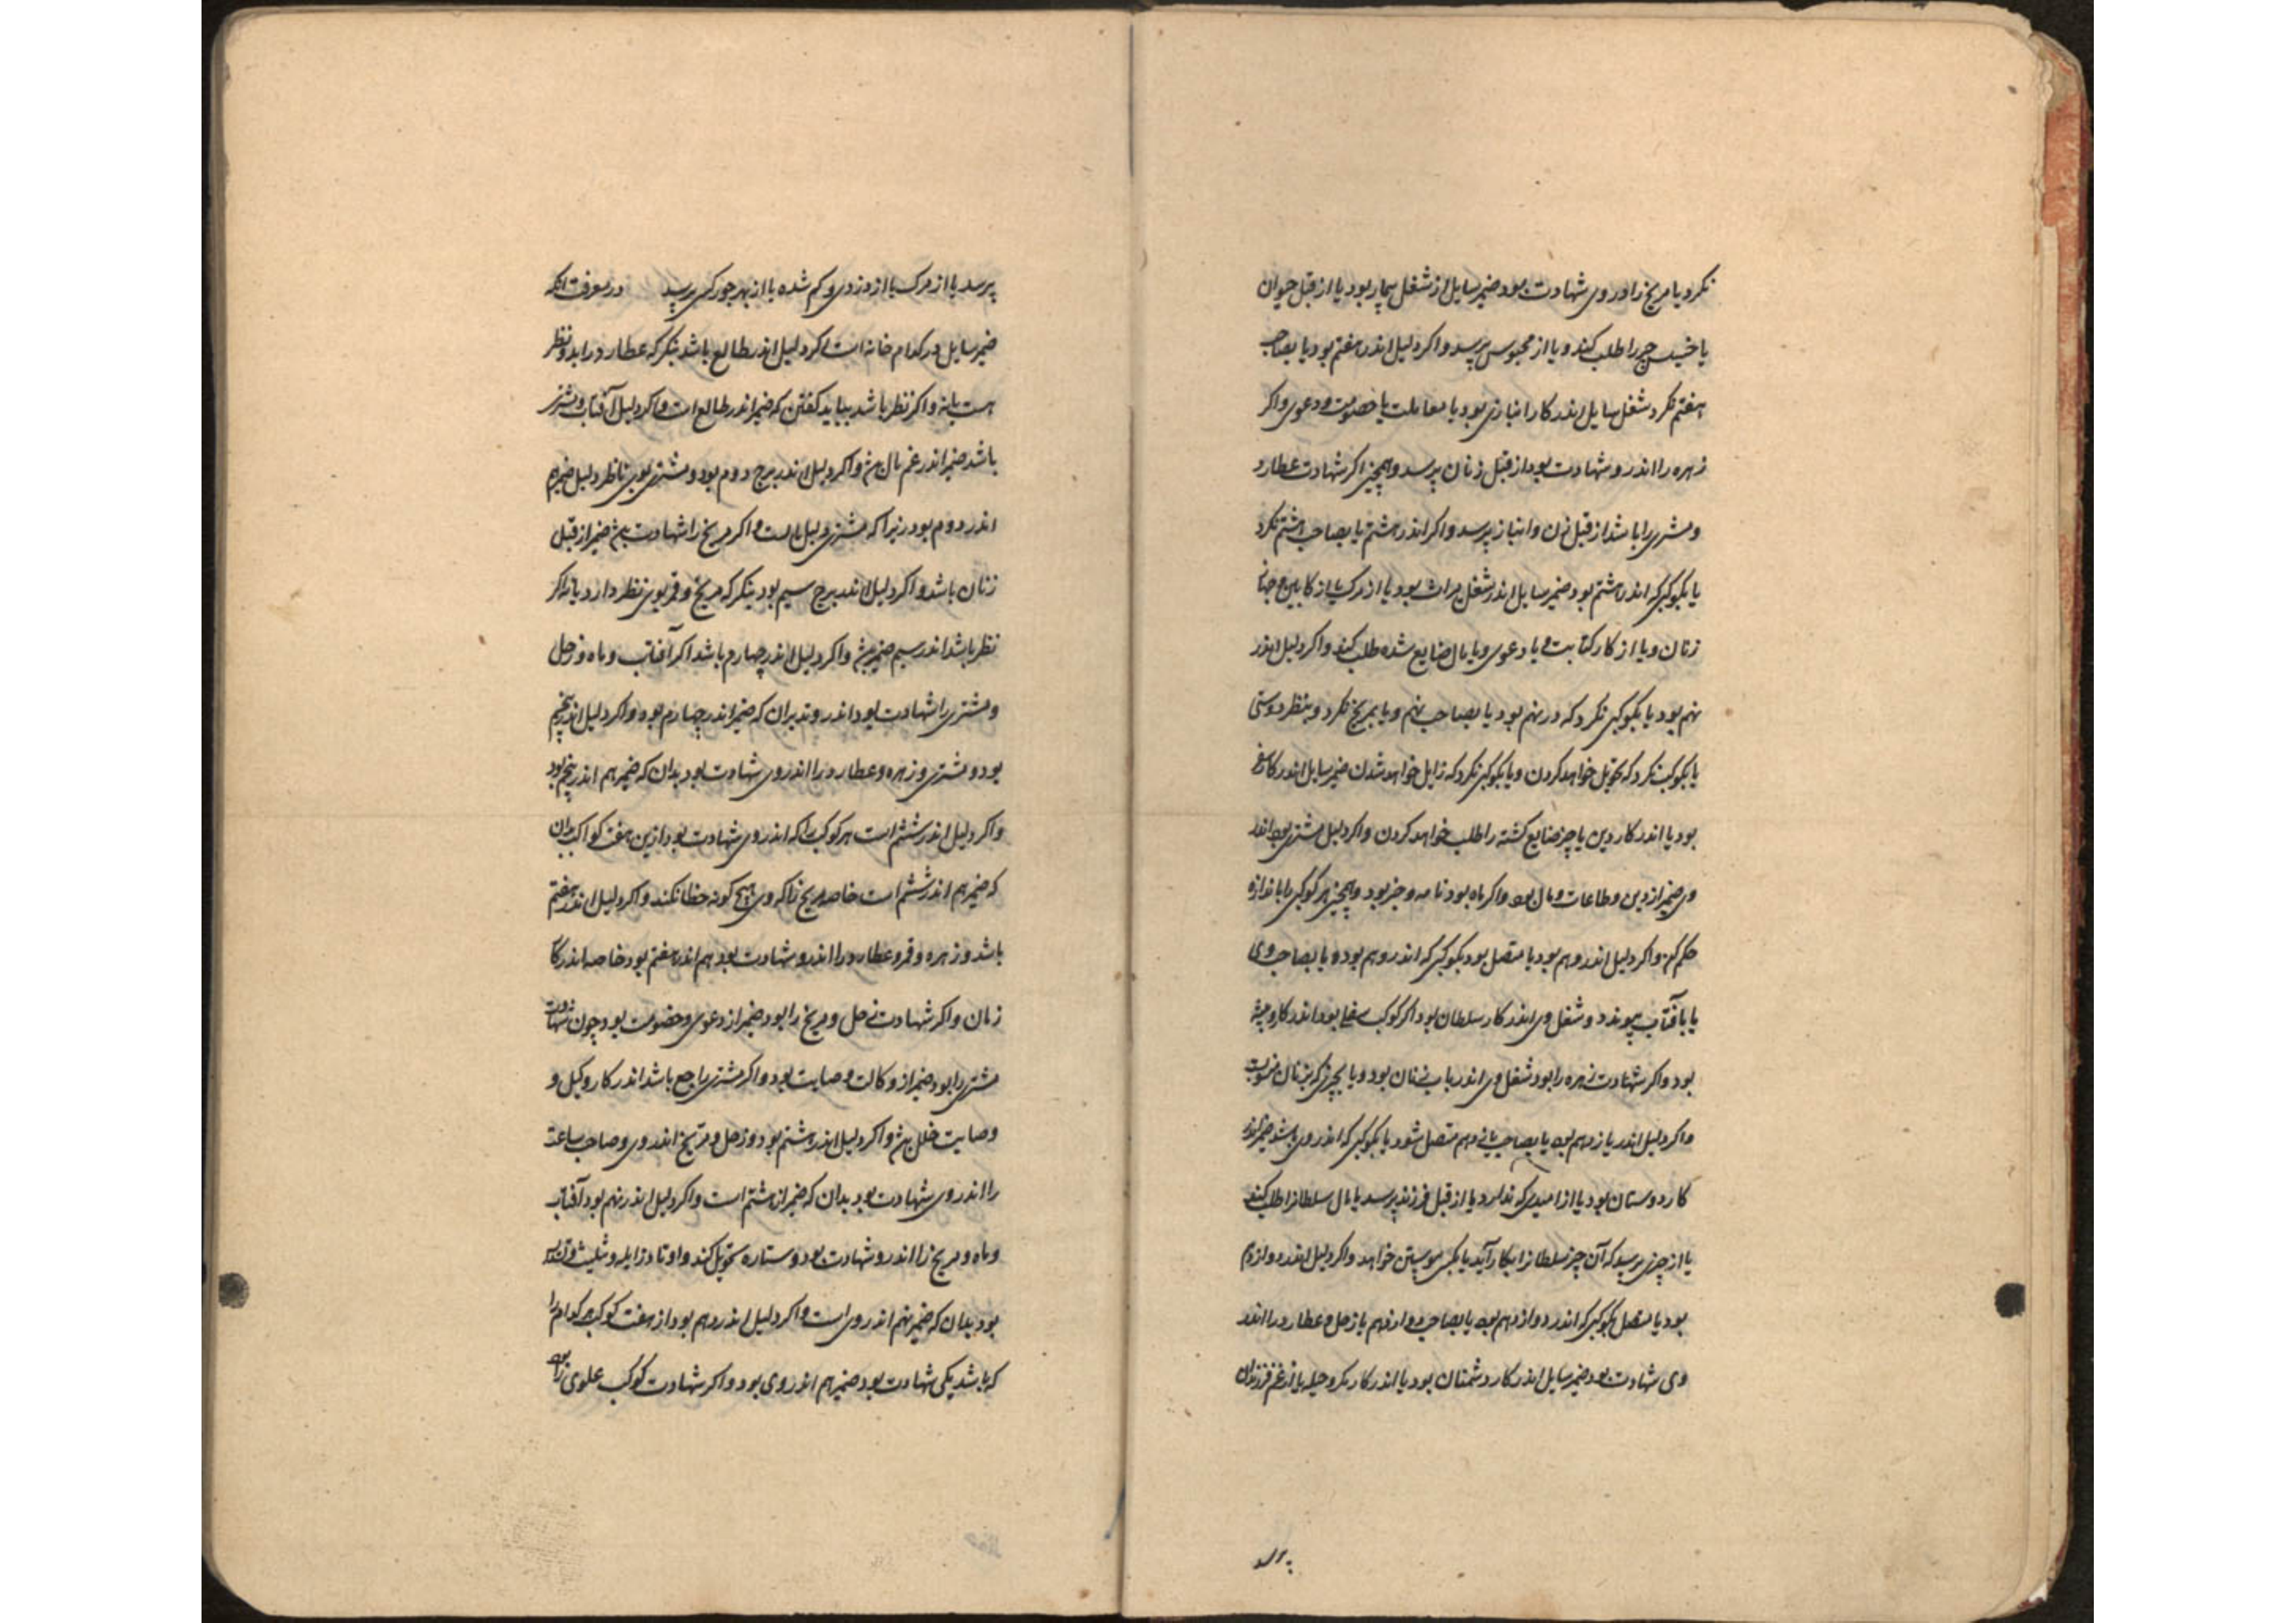 نکرد یا مریخ را در وی شهادت بود ضمیر سایل از شغل بیمار بود یا از قبل حیوان
یا خسیس چیز را طلب کند و یا از محبوس پرسد و اکر دلیل اندر هفتم بود یا بصاحب
هفتم نکرد شغل سایل اندر کار انبازی بود یا معاملت یا خصومت و دعوی و اکر
زهره را اندر و شهادت بود از قبل زنان پرسد و همچنین اکر شهادت عطارد
و مشتری را باشد از قبل زن و انباز پرسد و اکر اندر هشتم یا بصاحب هشتم نکرد
یا بکوکبی که اندر هشتم بود ضمیر سایل اندر شغل میراث بود یا از مرک یا از کابین و
زنان و یا از کار کتابت و یا دعوی و یا مال ضایع شده طلب کند و اکر دلیل اندر
نهم بود یا بکوکبی نکرد که در نهم بود یا بصاحب نهم و یا بمریخ نکرد و بنظر دوستی
یا بکوکب نکرد که تحویل خواهد کردن و یا بکوکبی نکرد که زایل خواهد شدن ضمیر سایل اندر کار سفر
بود یا اندر کار دین یا چیز ضایع کشته را طلب خواهد کردن و اکر دلیل مشتری بود اندر
وی ضمیر از دین و طاعات و مال بود و اکر ماه بود نامه و خبر بود و همچنین هر کوکبی را باندازه
حکم کن و اکر دلیل اندر دهم بود یا متصل بود بکوکبی که اندر دهم بود و یا بصاحب وی
یا بآفتاب پیوندد و شغل وی اندر کار سلطان بود اکر کوکب سفلی بود اندر کار و پیشه
بود و اکر شهادت زهره را بود شغل وی اندر باب زنان بود و یا بچیزی که بزنان منسوبست
و اکر دلیل اندر یازدهم بود یا بصاحب یازدهم متصل شود یا بکوکبی که اندر وی باشد ضمیر اندر
کار دوستان بود یا از امیدی که ندارد یا از قبل فرزند پرسد یا مال سلطانرا طلب کند
یا از چیزی پرسد که آن چیز سلطانرا بکار آید یا بکسی پیوستن خواهد و اکر دلیل اندر دوازدهم
بود یا متصل بکوکبی که اندر دوازدهم بود یا بصاحب دوازدهم یا زحل و عطارد را اندر
وی شهادت بود ضمیر سایل اندر کار دشمنان بود یا اندر کار مکر و حیله یا از غم فرزندان
پرسد
پرسد یا از مرک یا از دزدی و کم شده یا از بهر جور کسی پرسد در معرفت انکه
ضمیر سایل در کدام خانه است اکر دلیل اندر طالع باشد بنکر که عطارد را بدو نظر
هست یا نه و اکر نظر باشد بباید کفتن که ضمیر اندر طالع است و اکر دلیل آفتاب و مشتری
باشد ضمیر اندر غم مال بود و اکر دلیل اندر برج دوم بود و مشتری بوی ناظر دلیل ضمیر هم
اندر دوم بود زیرا که مشتری دلیل مالست و اکر مریخ را شهادت بود ضمیر از قبل
زنان باشد و اکر دلیل اندر برج سیم بود بنکر که مریخ و قمر بوی نظر دارد یا نه اکر
نظر باشد اندر سیم ضمیر بود و اکر دلیل اندر چهارم باشد اکر آفتاب و ماه و زحل
و مشتری را شهادت بود اندر و بدان که ضمیر اندر چهارم بود و اکر دلیل اندر پنجم
بود و مشتری و زهره و عطارد را اندر وی شهادت بود بدان که ضمیر هم اندر پنجم بود
و اکر دلیل اندر ششم است هر کوکب را که اندر وی شهادت بود ازین هفت کواکب بدان
که ضمیر هم اندر ششم است خاصه مریخ زاکه وی هیچ کونه خطا نکند و اکر دلیل اندر هفتم
باشد و زهره و قمر و عطارد را اندر و شهادت بود هم اندر هفتم بود خاصه اندر کار
زنان و اکر شهادت زحل و مریخ را بود ضمیر از دعوی و خصومت بود چون شهادت
مشتری را بود ضمیر از وکالت و وصایت بود و اکر مشتری راجع باشد اندر کار وکیل و
وصایت خلل بود و اکر دلیل اندر هشتم بود و زحل و مریخ اندر وی و صاحب ساعت
را اندر وی شهادت بود بدان که ضمیر از هشتم است و اکر دلیل اندر نهم بود آفتاب
و ماه و مریخ را اندر و شهادت بود و ستاره تحویل کند و اوتاد زایله و تثلیث و تسدیس
بود بدان که ضمیر نهم اندر وی است و اکر دلیل اندر دهم بود از هفت کوکب هر کدام را
که باشد یکی شهادت بود ضمیر هم اندر وی بود و اکر شهادت کوکب علوی را بود